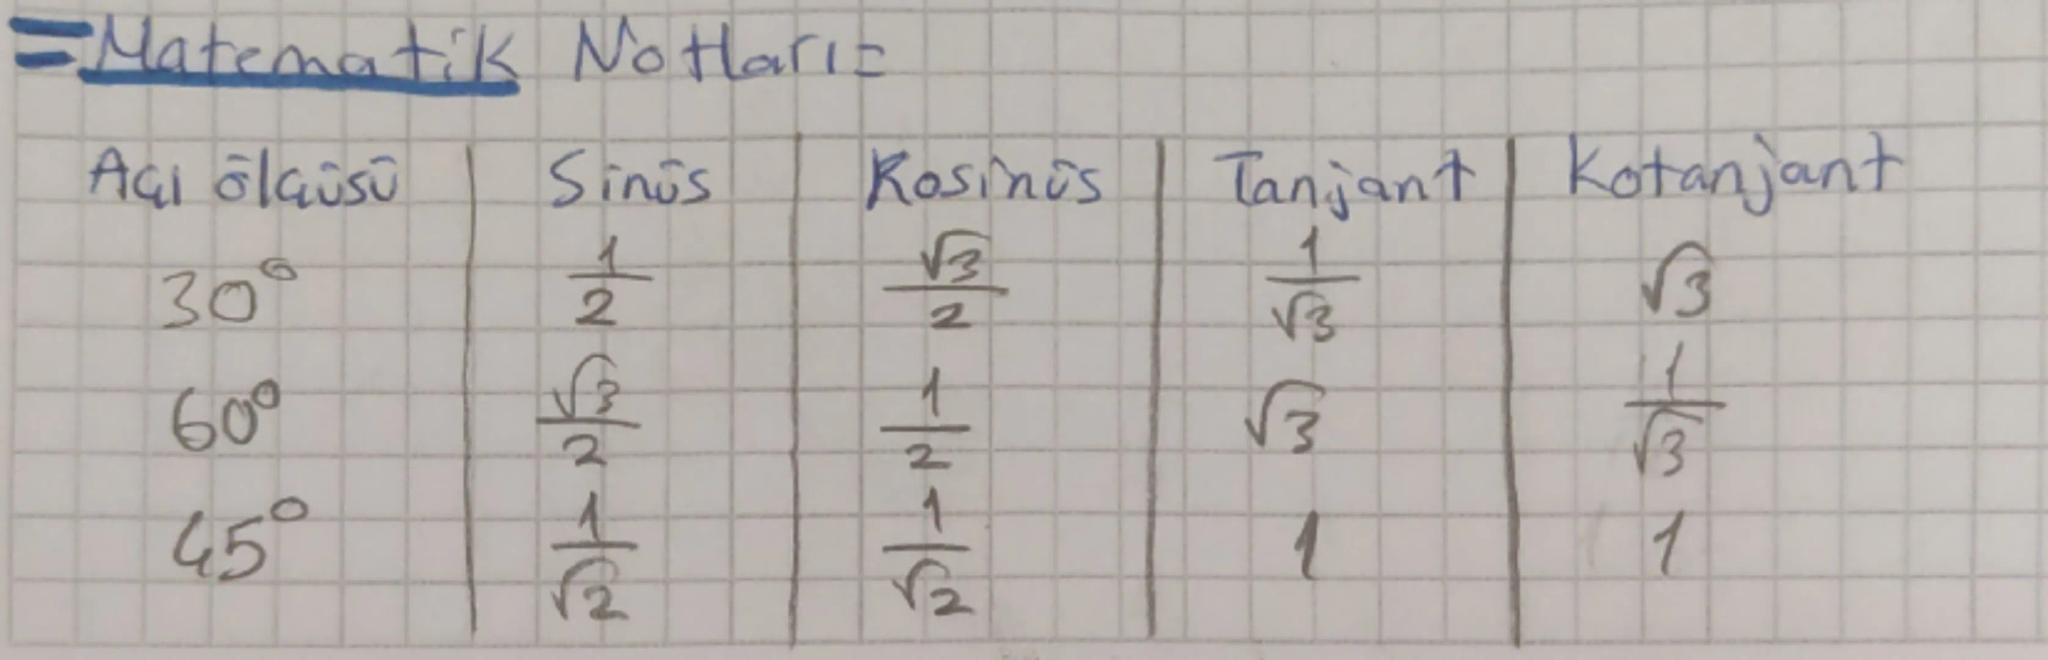 =Matematik Notları=
Açı ölçüsü | Sinüs | Kosinüs | Tanjant | Kotanjant
30° | 1/2 | √3/2 | 1/√3 | √3
60° | √3/2 | 1/2 | √3 | 1/√3
45° | 1/√2 | 1/√2 | 1 | 1